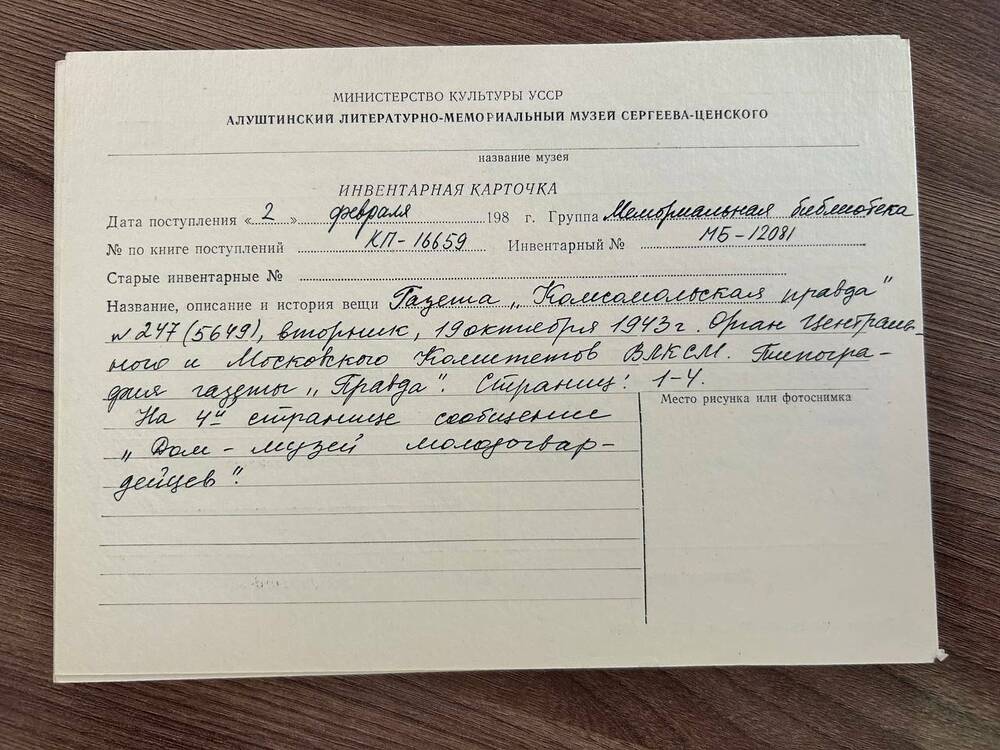 МИНИСТЕРСТВО КУЛЬТУРЫ УССР
АЛУШТИНСКИЙ ЛИТЕРАТУРНО-МЕМОРИАЛЬНЫЙ МУЗЕЙ СЕРГЕЕВА-ЦЕНСКОГО
название музея
ИНВЕНТАРНАЯ КАРТОЧКА
Дата поступления «2» февраля 198 г. Группа Мемориальная библиотека
№ по книге поступлений КП-16659 Инвентарный № МБ-12081
Старые инвентарные №
Название, описание и история вещи Газета „Комсомольская правда"
№ 247 (5649), вторник, 19 октября 1943 г. Орган Централь-
ного и Московского Комитетов ВЛКСМ. Типогра-
фия газеты „Правда". Страниц: 1-4.
Место рисунка или фотоснимка
На 4й странице сообщение
„Дом-музей молодогвар-
дейцев".